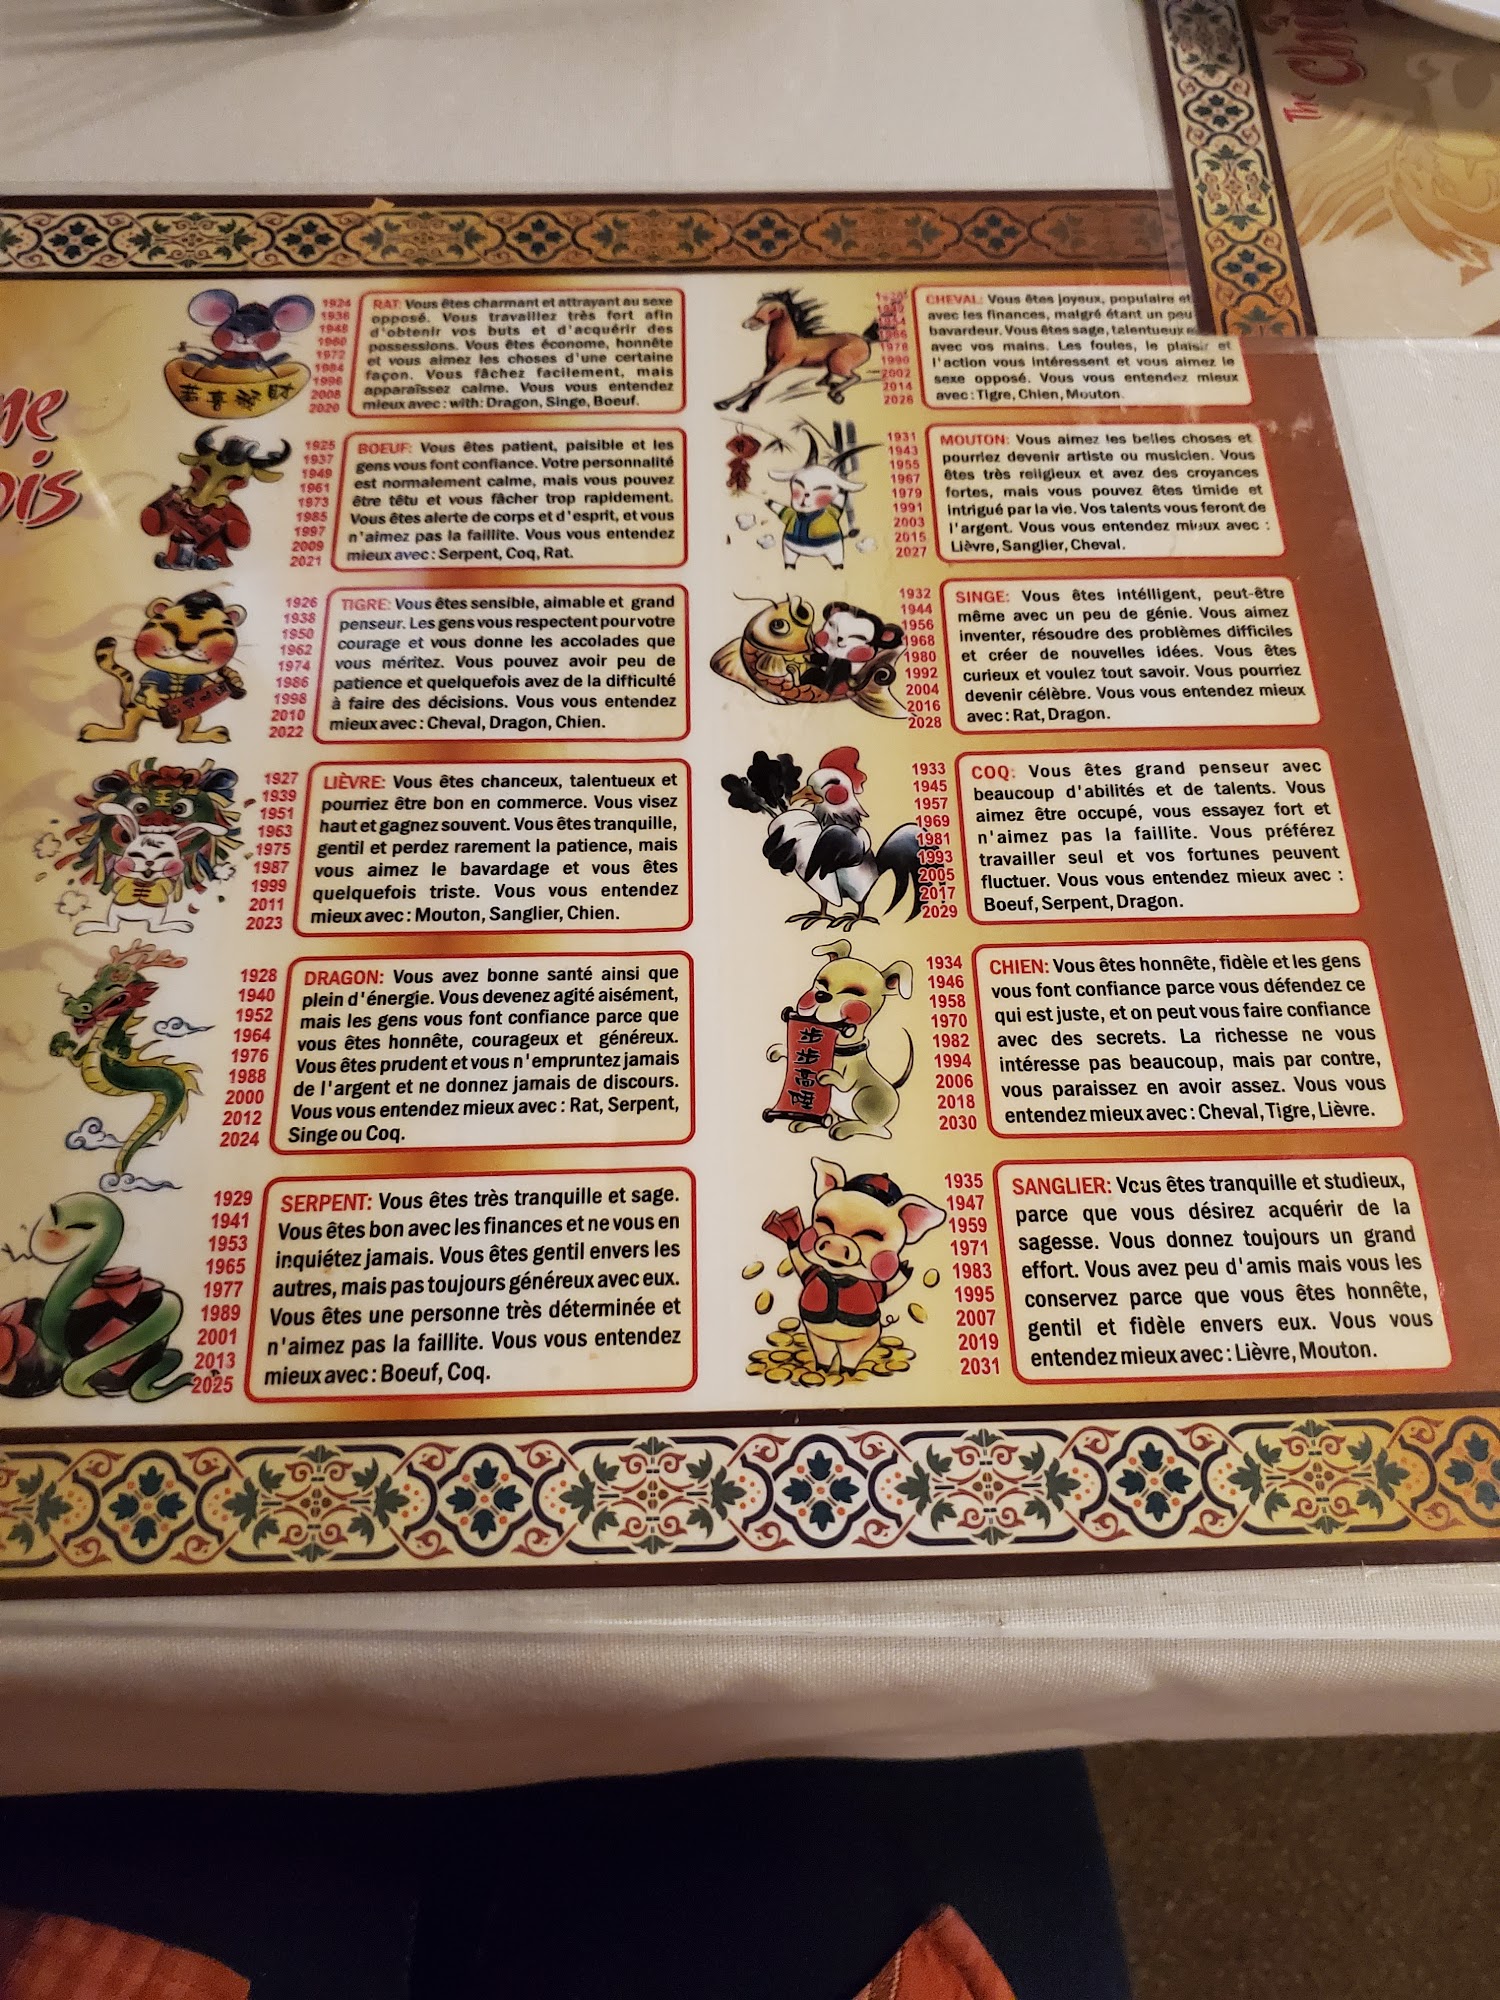 The
ne
ois
1924
1936
1948
1960
1972
1984
1996
2008
2020
RAT: Vous êtes charmant et attrayant au sexe
opposé. Vous travaillez très fort afin
d'obtenir vos buts et d'acquérir des
possessions. Vous êtes économe, honnête
et vous aimez les choses d'une certaine
façon. Vous fâchez facilement, mais
apparaîssez calme. Vous vous entendez
mieux avec : with: Dragon, Singe, Boeuf.
1925
1937
1949
1961
1973
1985
1997
2009
2021
BOEUF: Vous êtes patient, paisible et les
gens vous font confiance. Votre personnalité
est normalement calme, mais vous pouvez
être têtu et vous fâcher trop rapidement.
Vous êtes alerte de corps et d'esprit, et vous
n'aimez pas la faillite. Vous vous entendez
mieux avec : Serpent, Coq, Rat.
1926
1938
1950
1962
1974
1986
1998
2010
2022
TIGRE: Vous êtes sensible, aimable et grand
penseur. Les gens vous respectent pour votre
courage et vous donne les accolades que
vous méritez. Vous pouvez avoir peu de
patience et quelquefois avez de la difficulté
à faire des décisions. Vous vous entendez
mieux avec : Cheval, Dragon, Chien.
1927
1939
1951
1963
1975
1987
1999
2011
2023
LIÈVRE: Vous êtes chanceux, talentueux et
pourriez être bon en commerce. Vous visez
haut et gagnez souvent. Vous êtes tranquille,
gentil et perdez rarement la patience, mais
vous aimez le bavardage et vous êtes
quelquefois triste. Vous vous entendez
mieux avec : Mouton, Sanglier, Chien.
1928
1940
1952
1964
1976
1988
2000
2012
2024
DRAGON: Vous avez bonne santé ainsi que
plein d'énergie. Vous devenez agité aisément,
mais les gens vous font confiance parce que
vous êtes honnête, courageux et généreux.
Vous êtes prudent et vous n'empruntez jamais
de l'argent et ne donnez jamais de discours.
Vous vous entendez mieux avec : Rat, Serpent,
Singe ou Coq.
1929
1941
1953
1965
1977
1989
2001
2013
2025
SERPENT: Vous êtes très tranquille et sage.
Vous êtes bon avec les finances et ne vous en
inquiétez jamais. Vous êtes gentil envers les
autres, mais pas toujours généreux avec eux.
Vous êtes une personne très déterminée et
n'aimez pas la faillite. Vous vous entendez
mieux avec : Boeuf, Coq.
1966
1978
1990
2002
2014
2026
CHEVAL: Vous êtes joyeux, populaire et
avec les finances, malgré étant un peu
bavardeur. Vous êtes sage, talentueux e
avec vos mains. Les foules, le plaisir et
l'action vous intéressent et vous aimez le
sexe opposé. Vous vous entendez mieux
avec : Tigre, Chien, Mouton.
1931
1943
1955
1967
1979
1991
2003
2015
2027
MOUTON: Vous aimez les belles choses et
pourriez devenir artiste ou musicien. Vous
êtes très religieux et avez des croyances
fortes, mais vous pouvez êtes timide et
intrigué par la vie. Vos talents vous feront de
l'argent. Vous vous entendez mieux avec :
Lièvre, Sanglier, Cheval.
1932
1944
1956
1968
1980
1992
2004
2016
2028
SINGE: Vous êtes intélligent, peut-être
même avec un peu de génie. Vous aimez
inventer, résoudre des problèmes difficiles
et créer de nouvelles idées. Vous êtes
curieux et voulez tout savoir. Vous pourriez
devenir célèbre. Vous vous entendez mieux
avec : Rat, Dragon.
1933
1945
1957
1969
1981
1993
2005
2017
2029
COQ: Vous êtes grand penseur avec
beaucoup d'abilités et de talents. Vous
aimez être occupé, vous essayez fort et
n'aimez pas la faillite. Vous préférez
travailler seul et vos fortunes peuvent
fluctuer. Vous vous entendez mieux avec :
Boeuf, Serpent, Dragon.
1934
1946
1958
1970
1982
1994
2006
2018
2030
步步高陞
CHIEN: Vous êtes honnête, fidèle et les gens
vous font confiance parce vous défendez ce
qui est juste, et on peut vous faire confiance
avec des secrets. La richesse ne vous
intéresse pas beaucoup, mais par contre,
vous paraissez en avoir assez. Vous vous
entendez mieux avec : Cheval, Tigre, Lièvre.
1935
1947
1959
1971
1983
1995
2007
2019
2031
SANGLIER: Vous êtes tranquille et studieux,
parce que vous désirez acquérir de la
sagesse. Vous donnez toujours un grand
effort. Vous avez peu d'amis mais vous les
conservez parce que vous êtes honnête,
gentil et fidèle envers eux. Vous vous
entendez mieux avec : Lièvre, Mouton.